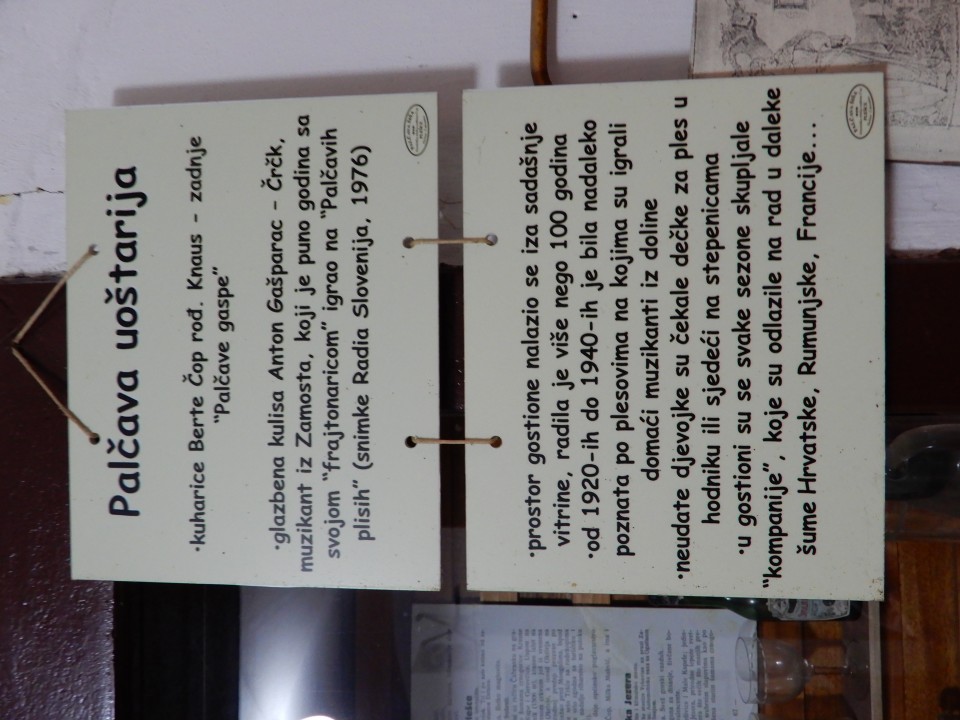 Palčava uoštarija
·kuharice Berte Čop rođ. Knaus - zadnje
“Palčave gaspe”
·glazbena kulisa Anton Gašparac - Črčk,
muzikant iz Zamosta, koji je puno godina sa
svojom “frajtonaricom” igrao na “Palčavih
plisih” (snimke Radia Slovenija, 1976)
·prostor gostione nalazio se iza sadašnje
vitrine, radila je više nego 100 godina
·od 1920-ih do 1940-ih je bila nadaleko
poznata po plesovima na kojima su igrali
domaći muzikanti iz doline
·neudate djevojke su čekale dečke za ples u
hodniku ili sjedeći na stepenicama
·u gostioni su se svake sezone skupljale
“kompanije”, koje su odlazile na rad u daleke
šume Hrvatske, Rumunjske, Francije...